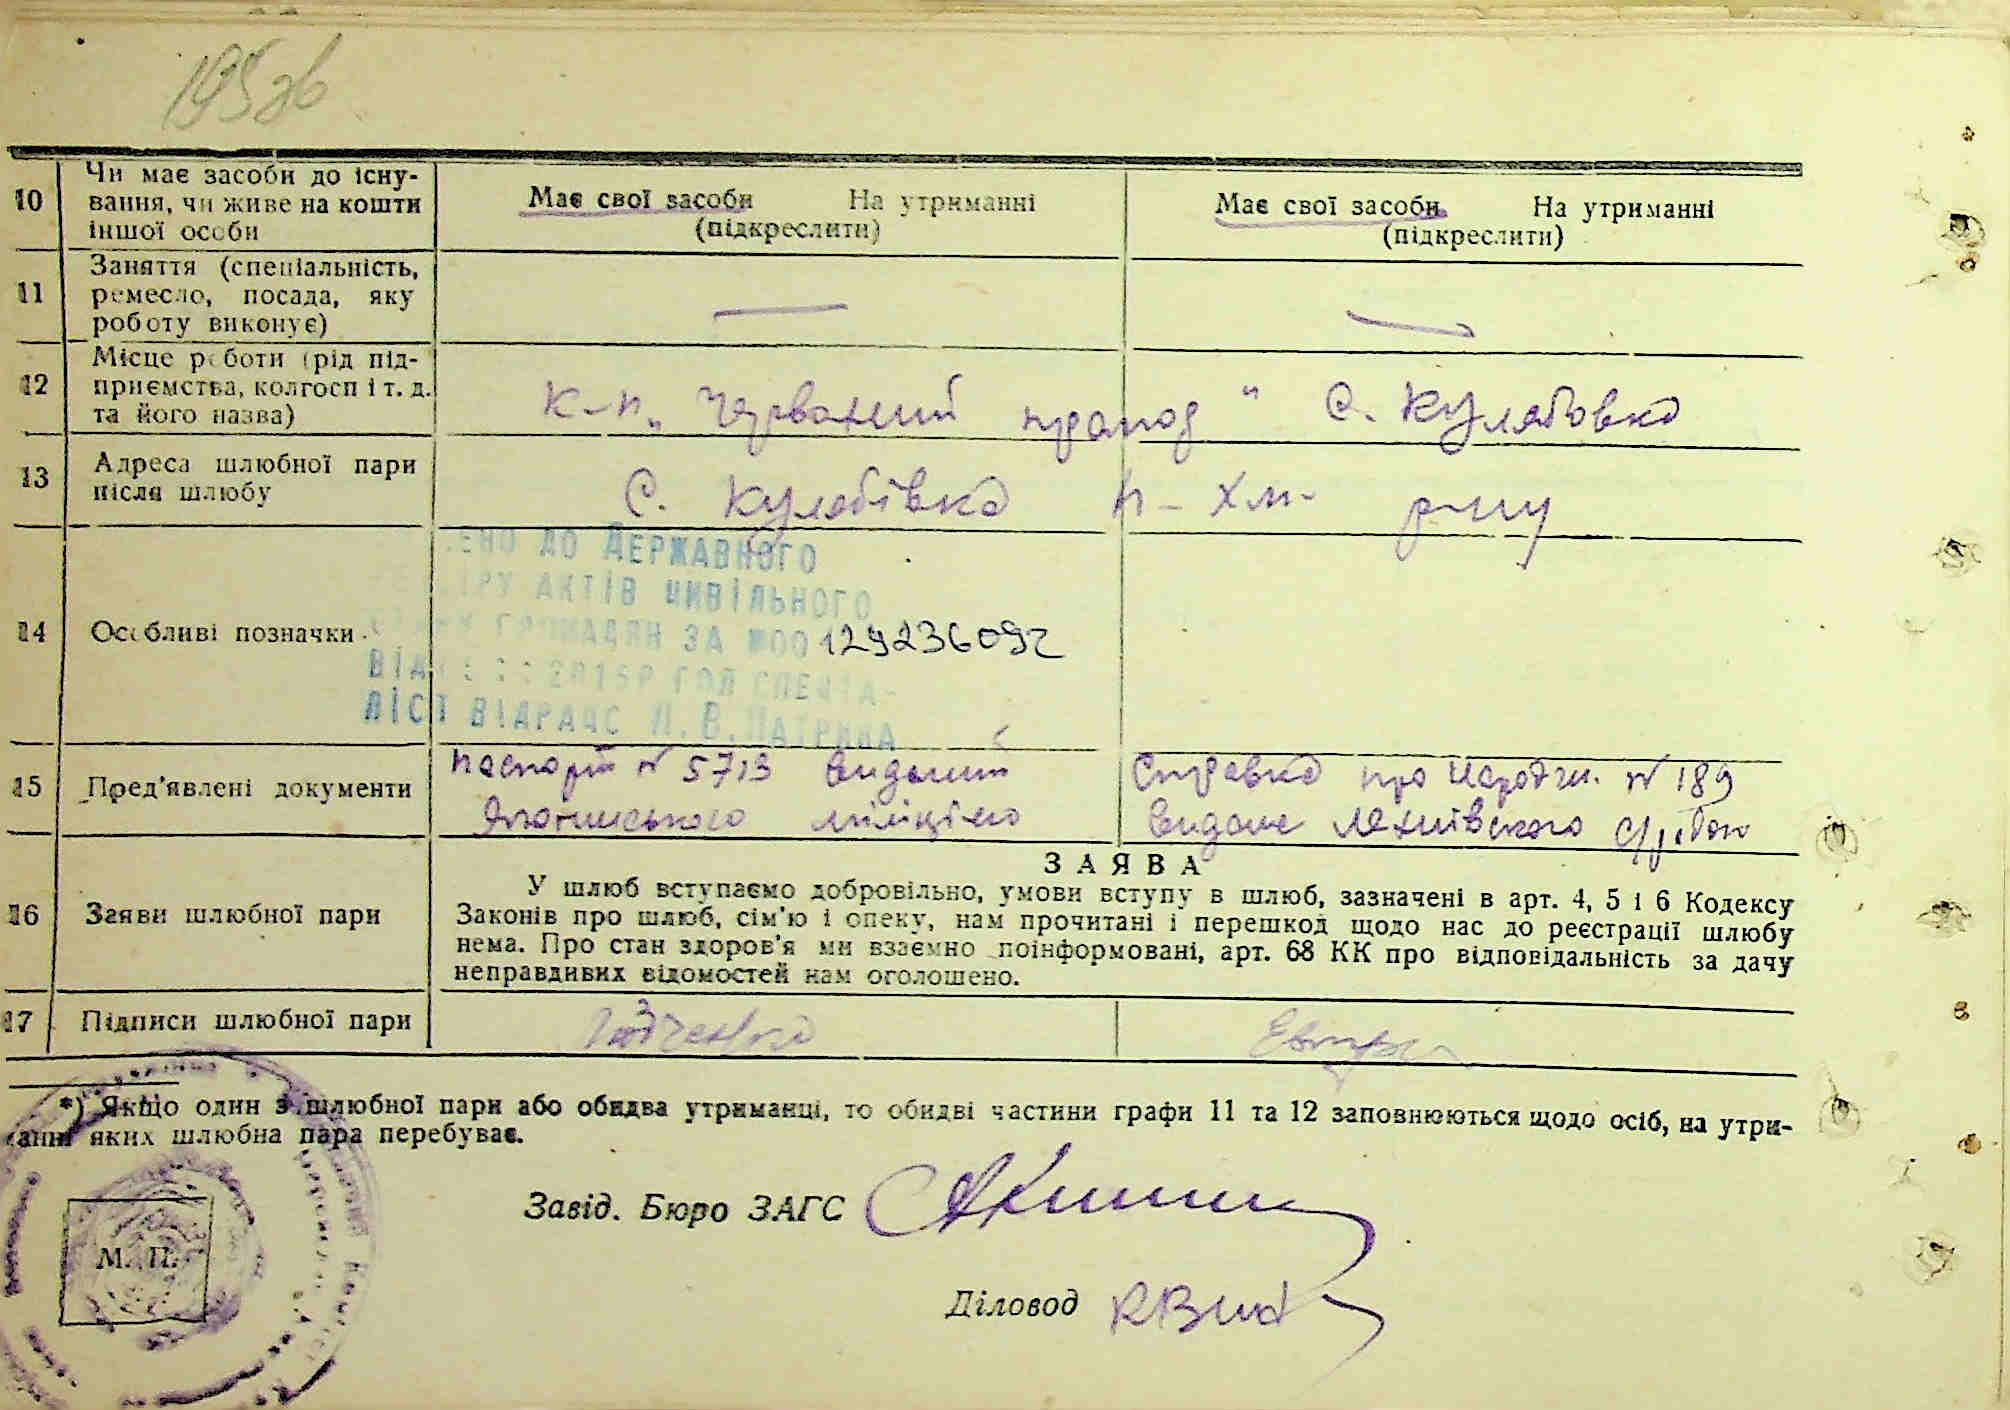 195 зв
10 Чи має засоби до існу-
вання, чи живе на кошти
іншої особи
Має свої засоби На утриманні
(підкреслити)
Має свої засоби На утриманні
(підкреслити)
11 Заняття (спеціальність,
ремесло, посада, яку
роботу виконує)
— —
12 Місце роботи (рід під-
приємства, колгосп і т. д.
та його назва)
к-п „Червоний прапор" С. Кулябовка
13 Адреса шлюбної пари
після шлюбу
С. Кулябівка
14 Особливі позначки
ДО ДЕРЖАВНОГО
АКТІВ ЦИВІЛЬНОГО
ГРОМАДЯН ЗА №00129236092
2015Р
ЛІСТ ВІДРАЦС
15 Пред'явлені документи
паспорт № 5713 виданий
міліцією
Справка про народжн. № 189
видана
16 Заяви шлюбної пари
ЗАЯВА
У шлюб вступаємо добровільно, умови вступу в шлюб, зазначені в арт. 4, 5 і 6 Кодексу
Законів про шлюб, сім'ю і опеку, нам прочитані і перешкод щодо нас до реєстрації шлюбу
нема. Про стан здоров'я ми взаємно поінформовані, арт. 68 КК про відповідальність за дачу
неправдивих відомостей нам оголошено.
17 Підписи шлюбної пари
*) Якщо один з шлюбної пари або обидва утриманці, то обидві частини графи 11 та 12 заповнюються щодо осіб, на утри-
анні яких шлюбна пара перебуває.
Завід. Бюро ЗАГС
М. П.
Діловод